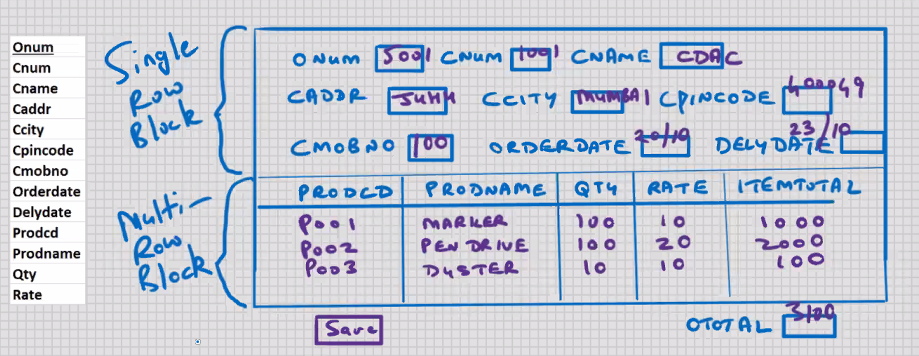 Onum
Cnum
Cname
Caddr
Ccity
Cpincode
Cmobno
Orderdate
Delydate
Prodcd
Prodname
Qty
Rate
Single
Row
Block
Multi-
Row
Block
ONUM 5001 CNUM 1001 CNAME CDAC
CADDR JUHU CCITY MUMBAI CPINCODE 400049
CMOBNO 100 ORDERDATE 20/10 DELYDATE 23/10
PRODCD PRODNAME QTY RATE ITEMTOTAL
P001 MARKER 100 10 1000
P002 PEN DRIVE 100 20 2000
P003 DUSTER 10 10 100
Save OTOTAL 3100